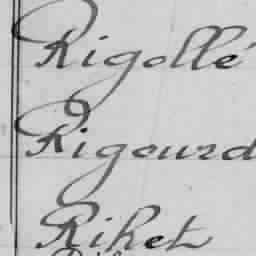 Rigollé
Rigourd
Rihet